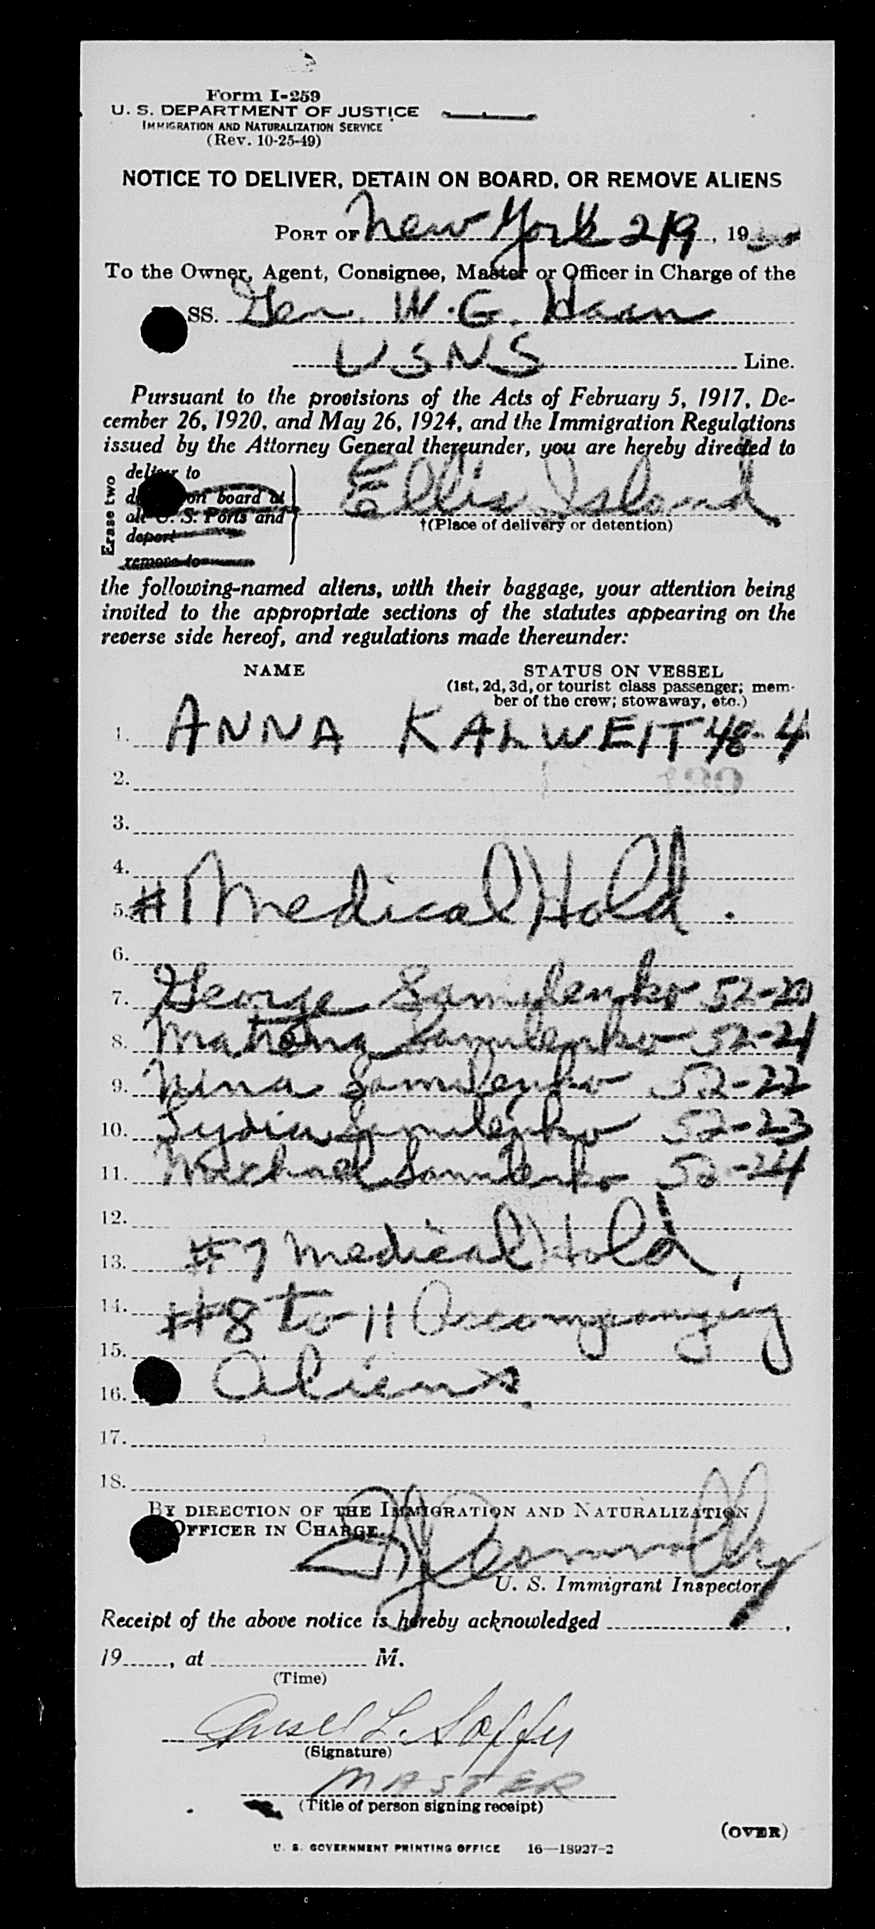 Form I-259
U. S. DEPARTMENT OF JUSTICE
IMMIGRATION AND NATURALIZATION SERVICE
(Rev. 10-25-49)
NOTICE TO DELIVER, DETAIN ON BOARD, OR REMOVE ALIENS
PORT OF New York 2/9, 19
To the Owner, Agent, Consignee, Master or Officer in Charge of the
SS. Gen. W. G. Haan
USNS Line.
Pursuant to the provisions of the Acts of February 5, 1917, De-
cember 26, 1920, and May 26, 1924, and the Immigration Regulations
issued by the Attorney General thereunder, you are hereby directed to
Erase two
deliver to
on board at
all U. S. Ports and
deport
remove to
Ellis Island
†(Place of delivery or detention)
the following-named aliens, with their baggage, your attention being
invited to the appropriate sections of the statutes appearing on the
reverse side hereof, and regulations made thereunder:
NAME STATUS ON VESSEL
(1st, 2d, 3d, or tourist class passenger; mem-
ber of the crew; stowaway, etc.)
1. ANNA KALWEIT 48-4
2.
3.
4.
5. # Medical Hold.
6.
7. George Samilenko 52-20
8. Matrona Samilenko 52-21
9. Nina Samilenko 52-22
10. Lydia Samilenko 52-23
11. Michael Samilenko 52-24
12.
13. #7 Medical Hold,
14. #8 to 11 Accompanying
15.
16. Aliens.
17.
18.
BY DIRECTION OF THE IMMIGRATION AND NATURALIZATION
OFFICER IN CHARGE.
Connolly
U. S. Immigrant Inspector
Receipt of the above notice is hereby acknowledged ,
19 , at M.
(Time)
L.
(Signature)
MASTER
(Title of person signing receipt)
(OVER)
U. S. GOVERNMENT PRINTING OFFICE 16—18927-2